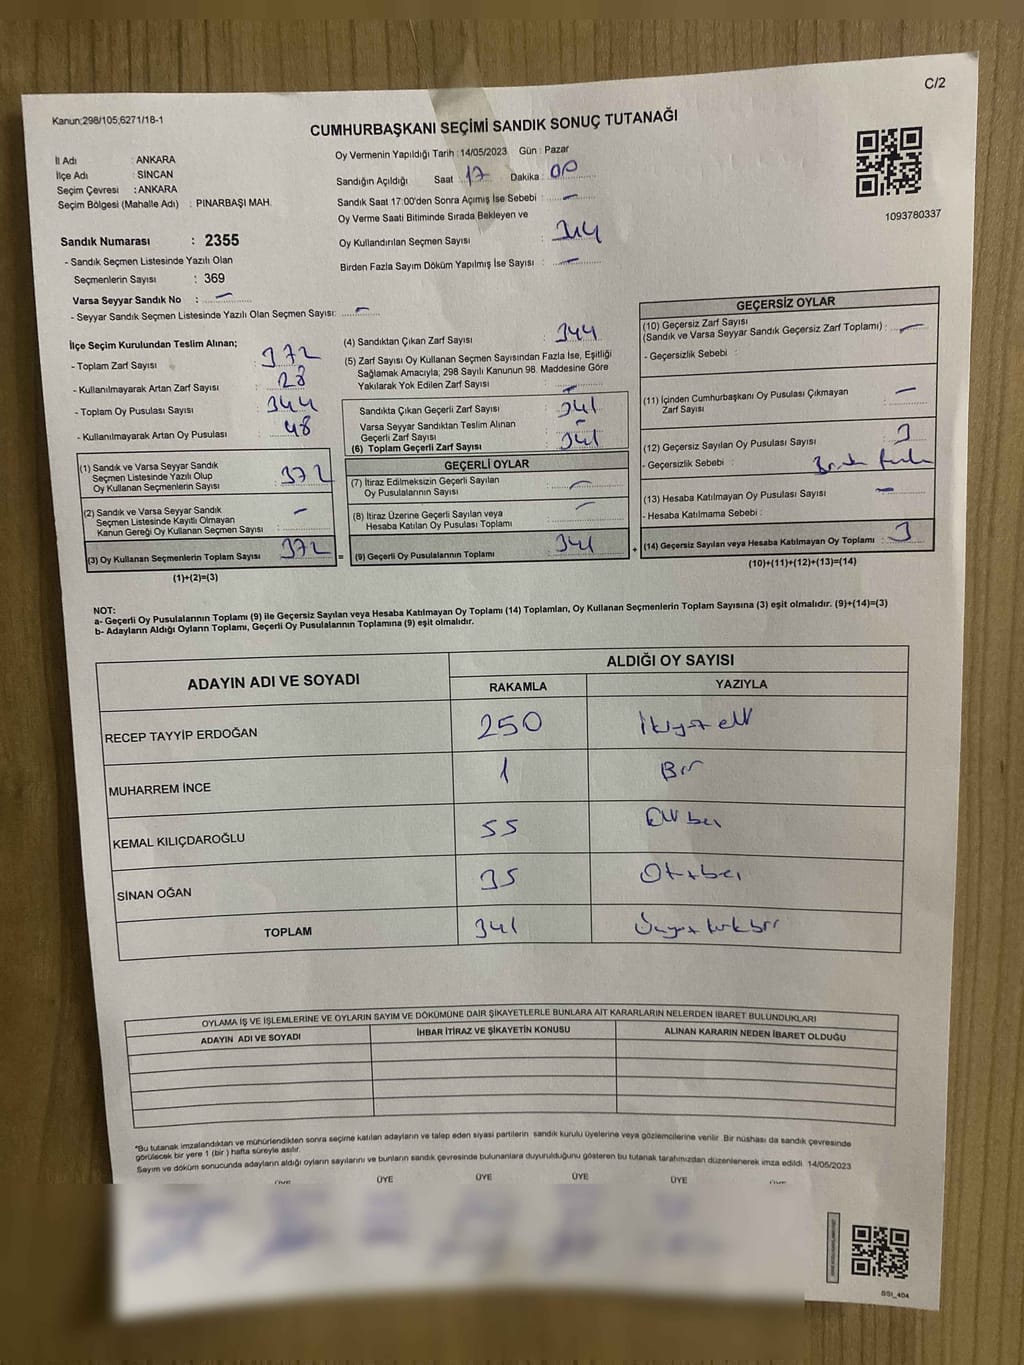 C/2
Kanun;298/105;6271/18-1
CUMHURBAŞKANI SEÇİMİ SANDIK SONUÇ TUTANAĞI
İl Adı : ANKARA
İlçe Adı : SİNCAN
Seçim Çevresi : ANKARA
Seçim Bölgesi (Mahalle Adı) : PINARBAŞI MAH.
Oy Vermenin Yapıldığı Tarih : 14/05/2023 Gün : Pazar
Sandığın Açıldığı Saat : 17 Dakika : 00
Sandık Saat 17:00'den Sonra Açımış İse Sebebi : —
Oy Verme Saati Bitiminde Sırada Bekleyen ve
Oy Kullandırılan Seçmen Sayısı : 344
Birden Fazla Sayım Döküm Yapılmış İse Sayısı : —
1093780337
Sandık Numarası : 2355
- Sandık Seçmen Listesinde Yazılı Olan
Seçmenlerin Sayısı : 369
Varsa Seyyar Sandık No : —
- Seyyar Sandık Seçmen Listesinde Yazılı Olan Seçmen Sayısı: —
İlçe Seçim Kurulundan Teslim Alınan;
- Toplam Zarf Sayısı : 372
- Kullanılmayarak Artan Zarf Sayısı : 28
- Toplam Oy Pusulası Sayısı : 344
- Kullanılmayarak Artan Oy Pusulası : 48
(1) Sandık ve Varsa Seyyar Sandık
Seçmen Listesinde Yazılı Olup
Oy Kullanan Seçmenlerin Sayısı : 372
(2) Sandık ve Varsa Seyyar Sandık
Seçmen Listesinde Kayıtlı Olmayan
Kanun Gereği Oy Kullanan Seçmen Sayısı : —
(3) Oy Kullanan Seçmenlerin Toplam Sayısı : 372
(1)+(2)=(3)
(4) Sandıktan Çıkan Zarf Sayısı : 344
(5) Zarf Sayısı Oy Kullanan Seçmen Sayısından Fazla İse, Eşitliği
Sağlamak Amacıyla, 298 Sayılı Kanunun 98. Maddesine Göre
Yakılarak Yok Edilen Zarf Sayısı : —
Sandıkta Çıkan Geçerli Zarf Sayısı : 341
Varsa Seyyar Sandıktan Teslim Alınan
Geçerli Zarf Sayısı : —
(6) Toplam Geçerli Zarf Sayısı : 341
GEÇERLİ OYLAR
(7) İtiraz Edilmeksizin Geçerli Sayılan
Oy Pusulalarının Sayısı : —
(8) İtiraz Üzerine Geçerli Sayılan veya
Hesaba Katılan Oy Pusulası Toplamı : —
= (9) Geçerli Oy Pusulalarının Toplamı : 341
GEÇERSİZ OYLAR
(10) Geçersiz Zarf Sayısı
(Sandık ve Varsa Seyyar Sandık Geçersiz Zarf Toplamı) : —
- Geçersizlik Sebebi :
(11) İçinden Cumhurbaşkanı Oy Pusulası Çıkmayan
Zarf Sayısı : —
(12) Geçersiz Sayılan Oy Pusulası Sayısı : 3
- Geçersizlik Sebebi : Birden fazla
(13) Hesaba Katılmayan Oy Pusulası Sayısı : —
- Hesaba Katılmama Sebebi :
+ (14) Geçersiz Sayılan veya Hesaba Katılmayan Oy Toplamı : 3
(10)+(11)+(12)+(13)=(14)
NOT:
a- Geçerli Oy Pusulalarının Toplamı (9) ile Geçersiz Sayılan veya Hesaba Katılmayan Oy Toplamı (14) Toplamları, Oy Kullanan Seçmenlerin Toplam Sayısına (3) eşit olmalıdır. (9)+(14)=(3)
b- Adayların Aldığı Oyların Toplamı, Geçerli Oy Pusulalarının Toplamına (9) eşit olmalıdır.
ADAYIN ADI VE SOYADI
ALDIĞI OY SAYISI
RAKAMLA YAZIYLA
RECEP TAYYİP ERDOĞAN 250 İkiyüz elli
MUHARREM İNCE 1 Bir
KEMAL KILIÇDAROĞLU 55 Elli beş
SİNAN OĞAN 35 Otuzbeş
TOPLAM 341 Üçyüz kırkbir
OYLAMA İŞ VE İŞLEMLERİNE VE OYLARIN SAYIM VE DÖKÜMÜNE DAİR ŞİKAYETLERLE BUNLARA AİT KARARLARIN NELERDEN İBARET BULUNDUKLARI
ADAYIN ADI VE SOYADI İHBAR İTİRAZ VE ŞİKAYETİN KONUSU ALINAN KARARIN NEDEN İBARET OLDUĞU
*Bu tutanak imzalandıktan ve mühürlendikten sonra seçime katılan adayların ve talep eden siyasi partilerin sandık kurulu üyelerine veya gözlemcilerine verilir. Bir nüshası da sandık çevresinde
görülecek bir yere 1 (bir) hafta süreyle asılır.
Sayım ve döküm sonucunda adayların aldığı oyların sayılarını ve bunların sandık çevresinde bulunanlara duyurulduğunu gösteren bu tutanak tarafımızdan düzenlenerek imza edildi. 14/05/2023
ÜYE ÜYE ÜYE ÜYE ÜYE ÜYE
SSI_404